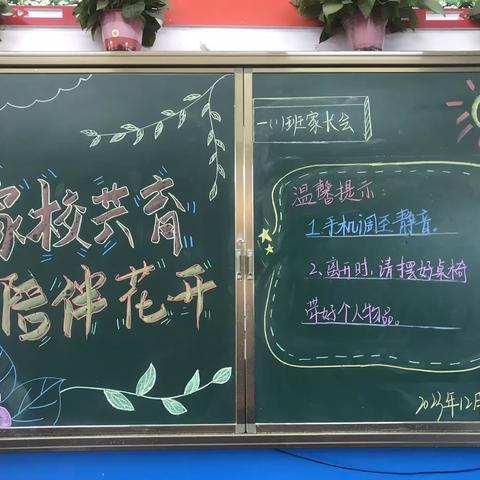 家校共育
陪伴花开
一(1)班家长会
温馨提示:
1.手机调至静音。
2.离开时,请摆好桌椅
带好个人物品。
2023年12月